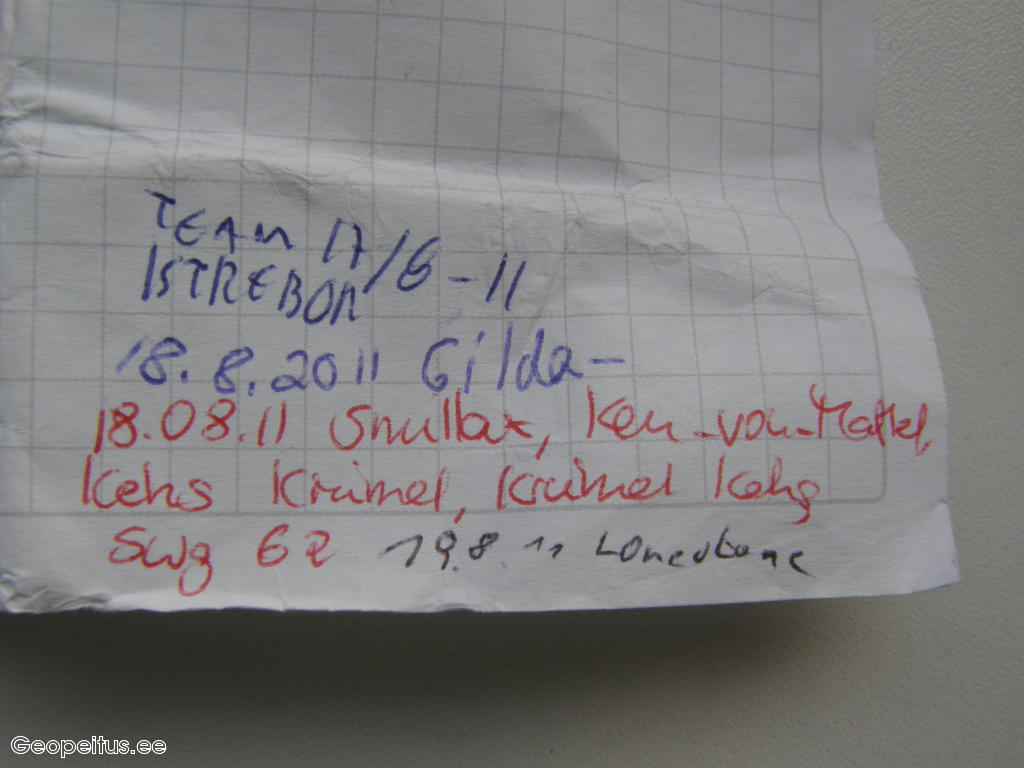 TEAM 17/6-11
ISTREBOR
18.8.2011 Gilda-
18.08.11 Smilbat, Ken-von-Mattel,
Keks Krümel, Krümel Keks
Swg 62 19.8.11
Geopeitus.ee